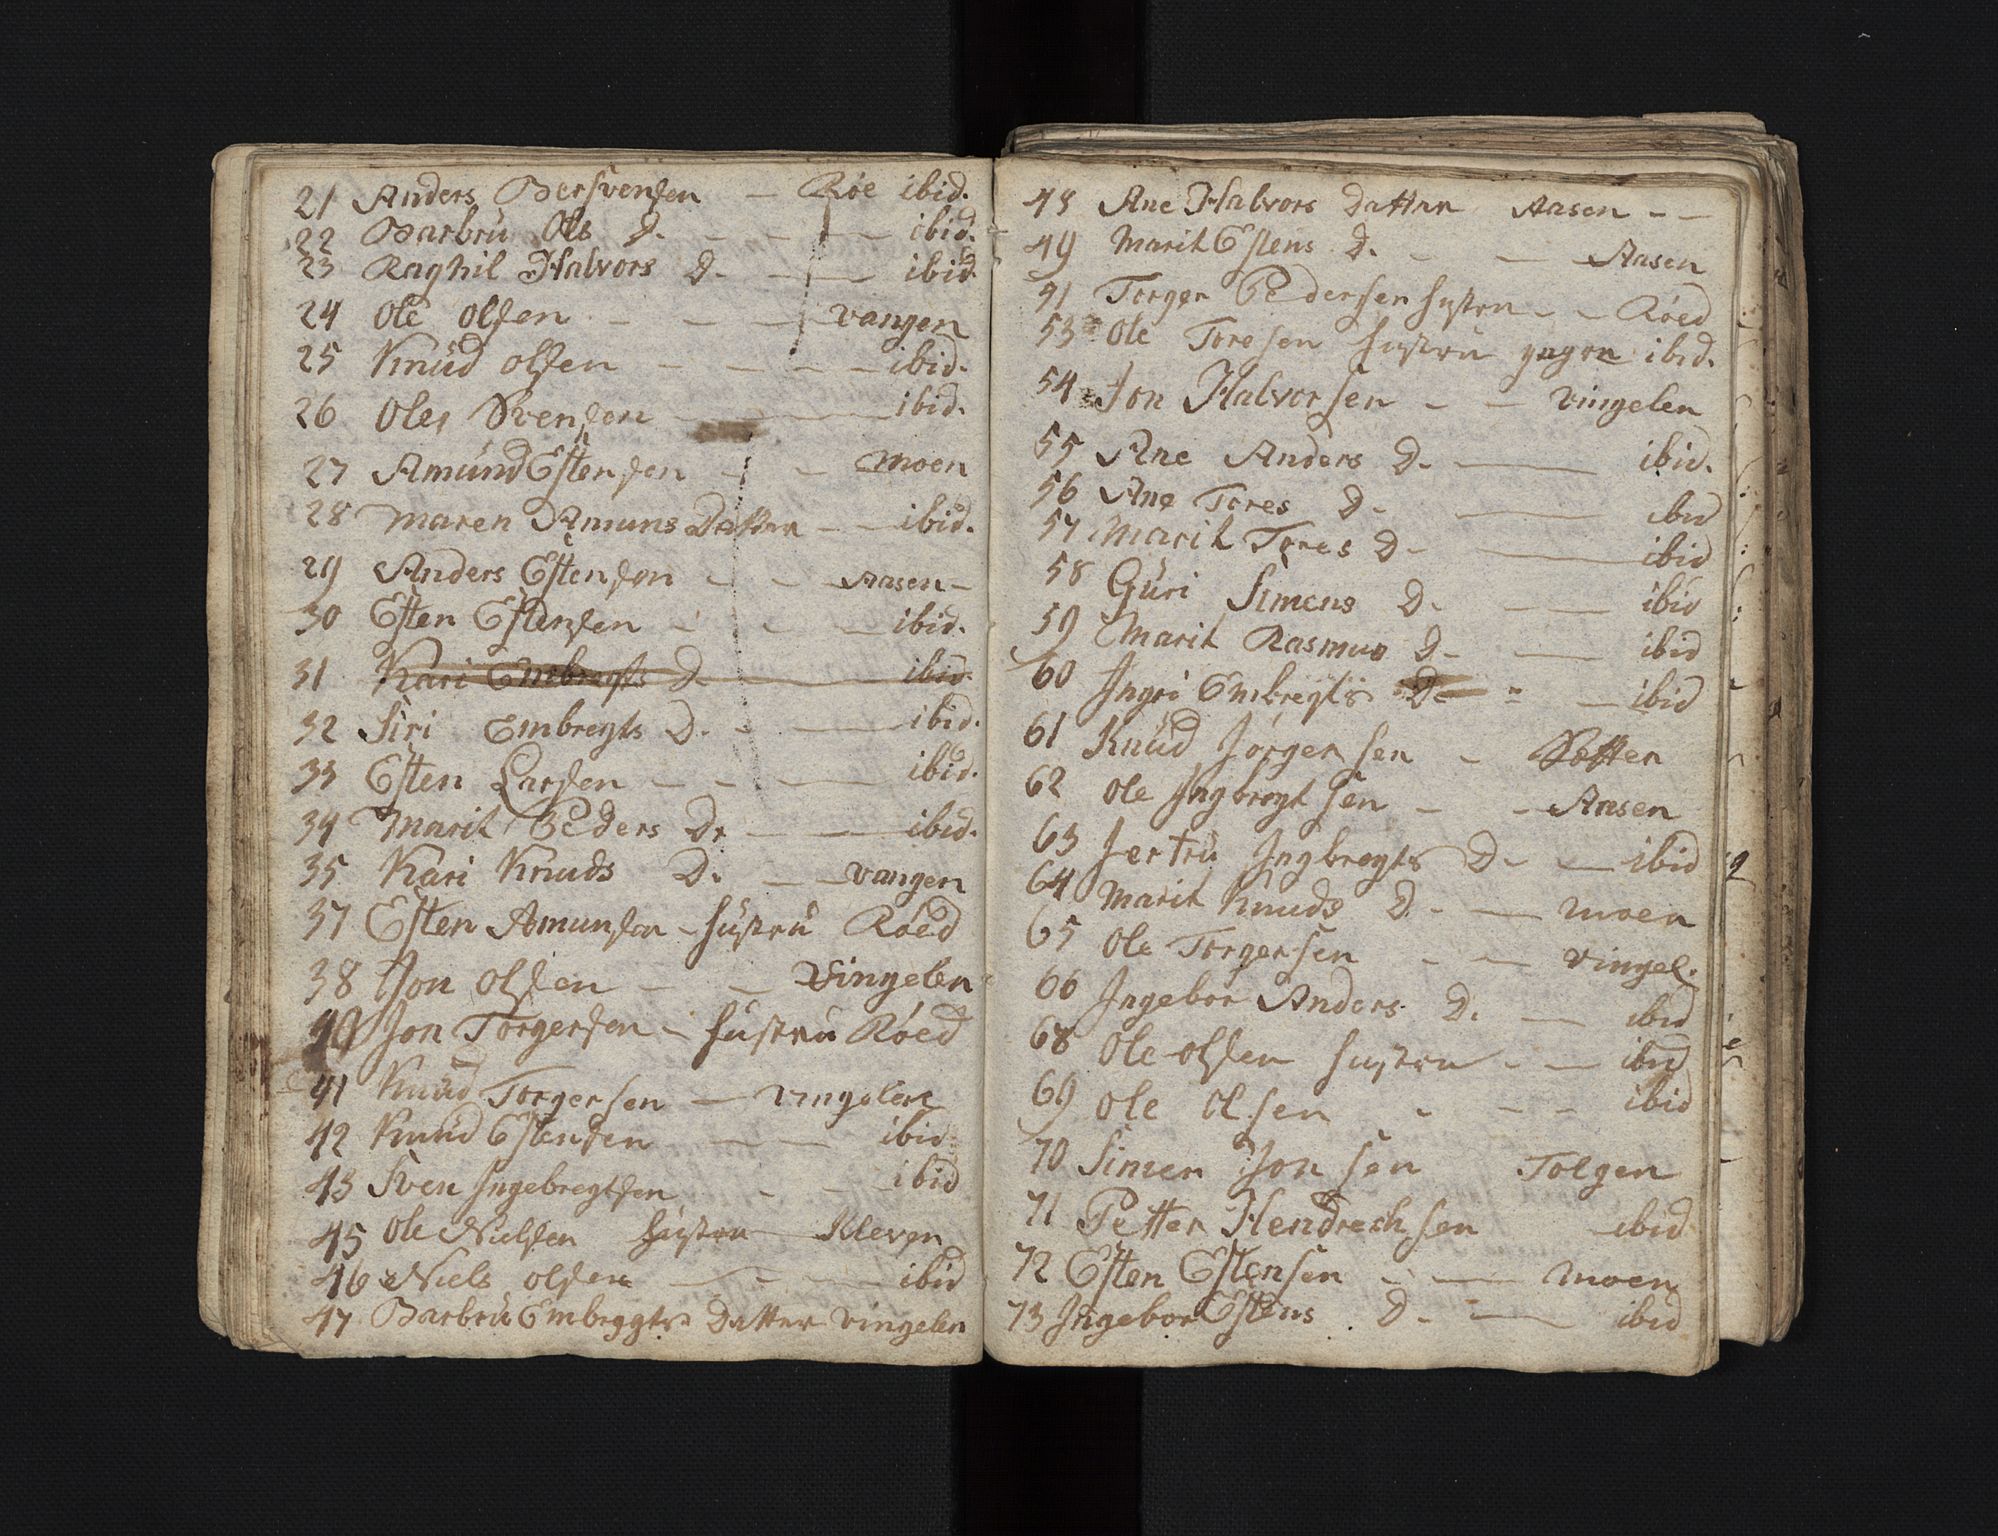 21 Anders Bersvensen — Röe ibid.
22 Barbrü Ols D. - - - ibid.
23 Raghil Halvors D. - — ibid.
24 Ole olsen - - - vangen
25 Knüd olsen - - - - ibid.
26 Oles Svensen — — ibid.
27 Amünd Estensen - - Moen
28 Maren Amuns Datter - - ibid.
29 Anders Estensen - - Aasen -
30 Esten Estensen - - - ibid.
31 Kari Embregts D. ibid.
32 Siri Embregts D. - — ibid.
33 Esten Larsen - - - — ibid.
34 Marit Peders Dr — — ibid.
35 Kari Knuds D. - - vangen
37 Esten Amunsen - hüstrü Röed
38 Jon olsen - - Vingelen
40 Jon Torgersen - hustru Röed
41 Knüd Torgersen — vingelen
42 Knud Estensen — — ibid
43 Sven Ingebregtsen - - ibid
45 Ole Nielsen hustru Kleven
46 Niels olsen — - — ibid
47 Barbrü Embreggts Datter vingelen
48 Ane Halvors Datter Aasen - -
49 Marit Estens D. - - — Aasen
51 Torger Pedersen hustru - - Röed
53 Ole Toresen hustru ibid.
54 Jon Halvorsen - - vingelen
55 Ane Anders D. — — ibid.
56 Ane Tores D. - — ibid
57 Marit Tores D - — ibid
58 Güri Simens D. - — ibid
59 Marit Rasmus D - — ibid
60 Ingri Embregts D. - — ibid
61 Knüd Jörgensen -
62 Ole Ingbregtsen - - Aasen
63 Jertru Ingbregts D - — ibid
64 Marit Knuds D. - — Moen
65 Ole Torgersen - — vingel.
66 Ingebor Anders D. - — ibid
68 Ole olsen hustru - - ibid
69 Ole Olsen - - - ibid
70 Simen Jonsen Tolgen
71 Petter Hendrechsen ibid
72 Esten Estensen - — Moen
73 Ingebor Estens D. - — ibid